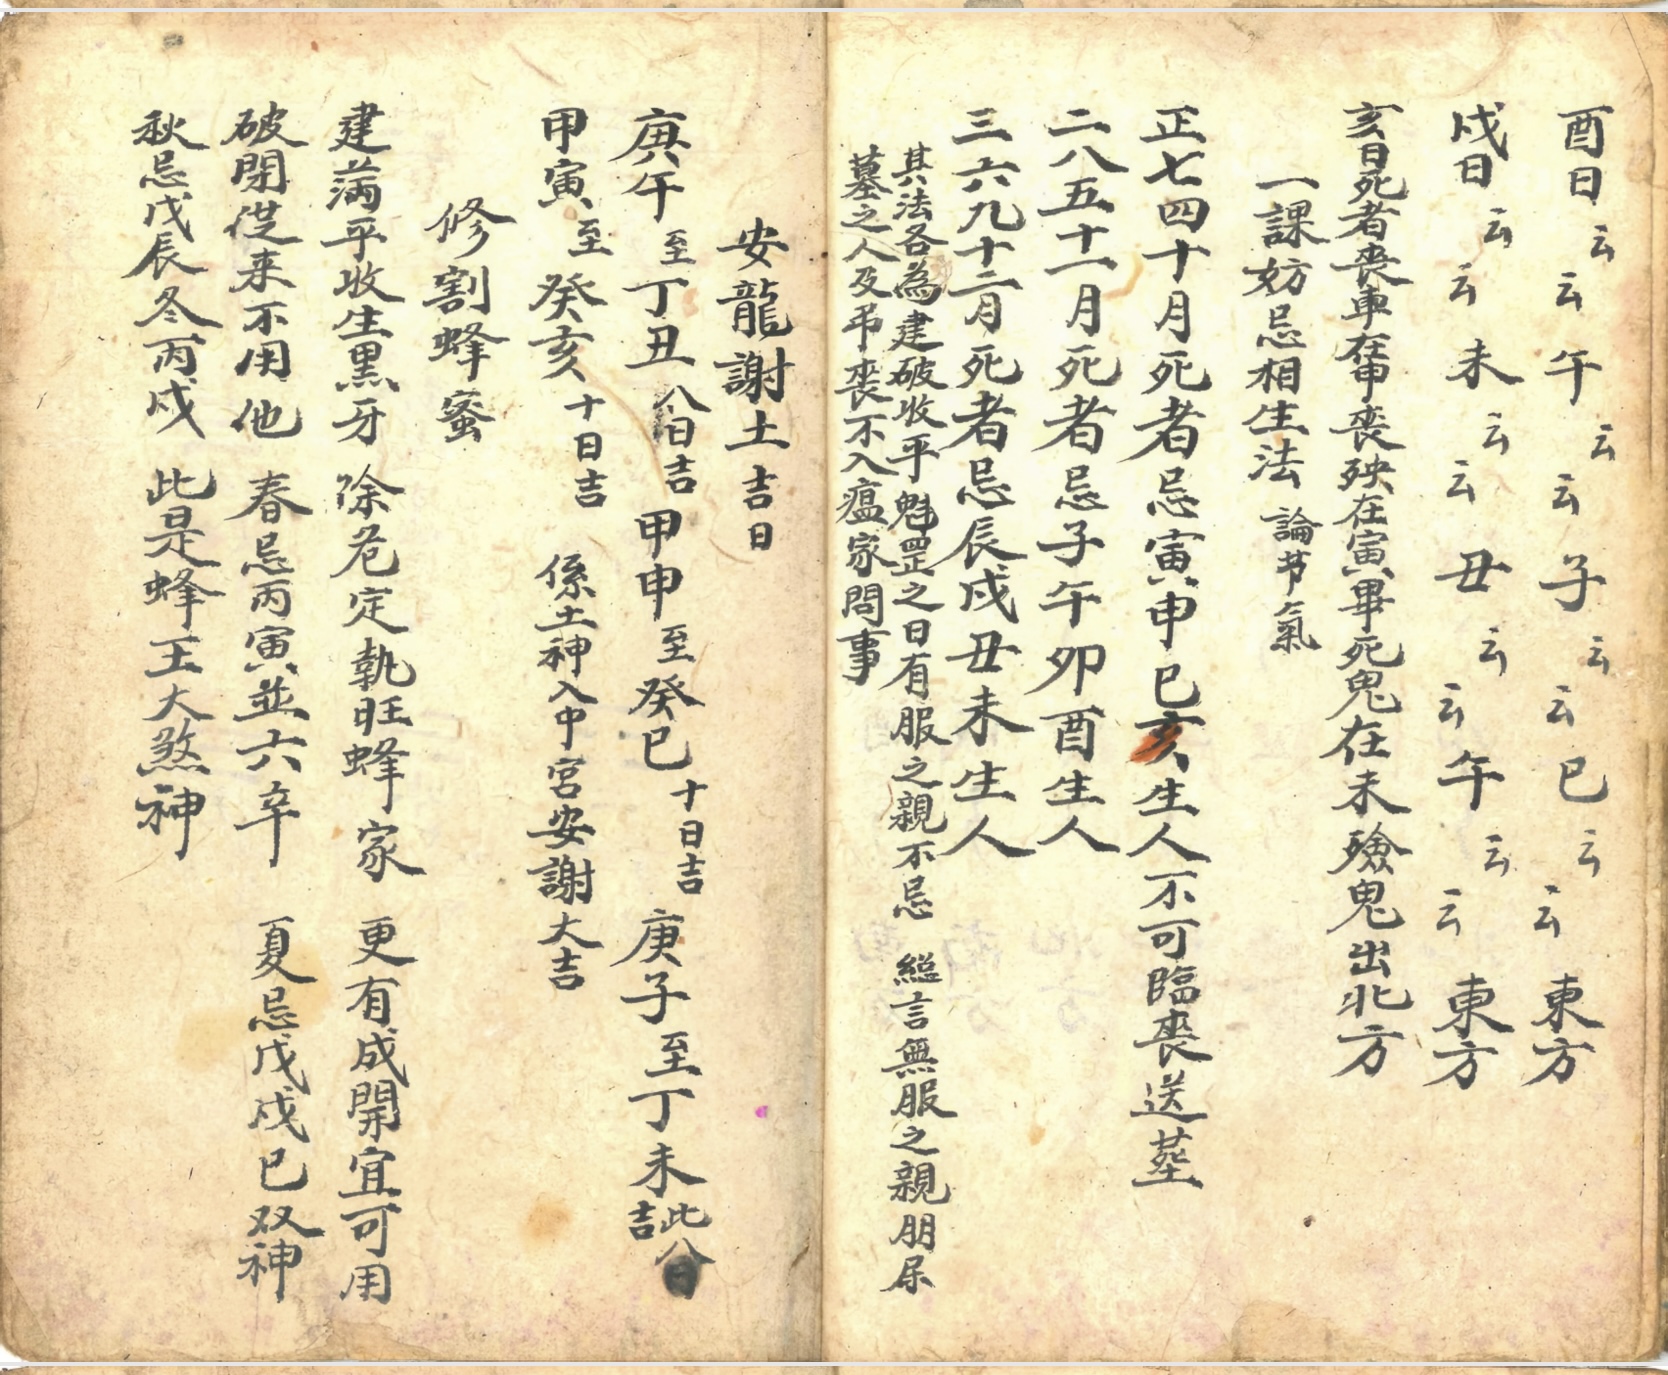 酉日云云午云云子云云巳云云東方
戌日云云未云云丑云云午云云東方
亥日死者丧車在申丧殃在寅畢死鬼在未殮鬼出北方
一課妨忌相生法 論节氣
正七四十月死者忌寅申巳亥生人不可臨丧送塟
二八五十一月死者忌子午卯酉生人
三六九十二月死者忌辰戌丑未生人
其法各為建破收平魁罡之日有服之親不忌 總言無服之親朋
墓之人及吊丧不入瘟家問事
安龍謝土吉日
庚午至丁丑八日吉 甲申至癸巳十日吉 庚子至丁未此八日吉
甲寅至癸亥十日吉 係土神入中宮安謝大吉
修割蜂蜜
建满平收生黑牙 除危定執旺蜂家 更有成開宜可用
破閉從来不用他 春忌丙寅並六辛 夏忌戊戌巳双神
秋忌戊辰冬丙戌 此是蜂王大煞神